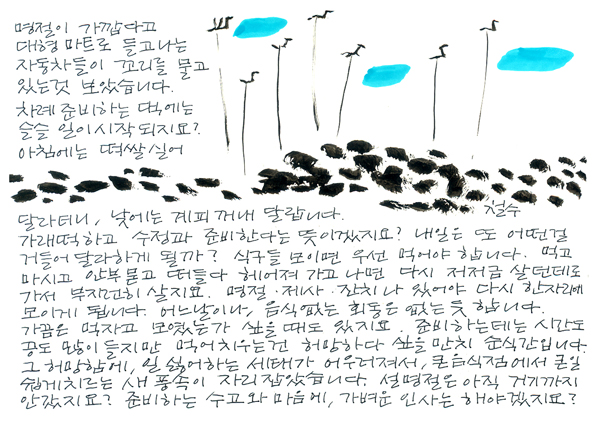 명절이 가깝다고
대형 마트로 들고나는
자동차들이 꼬리를 물고
있는것 보았습니다.
차례 준비하는 댁에는
슬슬 일이 시작 되지요?
아침에는 떡쌀 실어
철수
달라더니, 낮에는 계피 꺼내 달랍니다.
가래떡하고 수정과 준비한다는 뜻이겠지요? 내일은 또 어떤걸
거들어 달라하게 될까? 식구들 보이면 우선 먹어야 합니다. 먹고
마시고 안부묻고 떠들다 헤어져 가고 나면 다시 저저금 살던데로
가서 부지런히 살지요. 명절·제사·잔치나 있어야 다시 한자리에
모이게 됩니다. 어느날이나, 음식없는 회동은 없는듯 합니다.
가끔은 먹자고 모였는가 싶을때도 있지요. 준비하는데는 시간도
공도 많이 들지만 먹어치우는건 허망하다 싶을 만치 순식간입니다.
그 허망함에, 일 싫어하는 세태가 어우러져서, 큰음식점에서 큰일
쉽게치르는 새 풍속이 자리잡았습니다. 설명절은 아직 거기까지
안갔지요? 준비하는 수고와 마음에, 가벼운 인사는 해야겠지요?